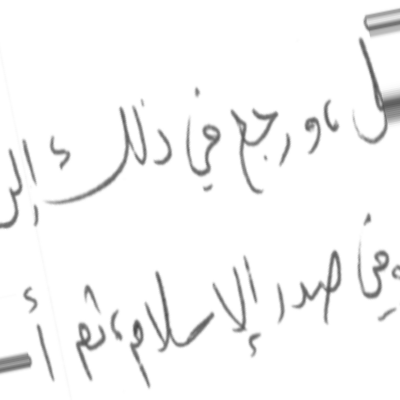 ل، ورجع في ذلك إلى
وفي صدر الإسلام، ثم أ